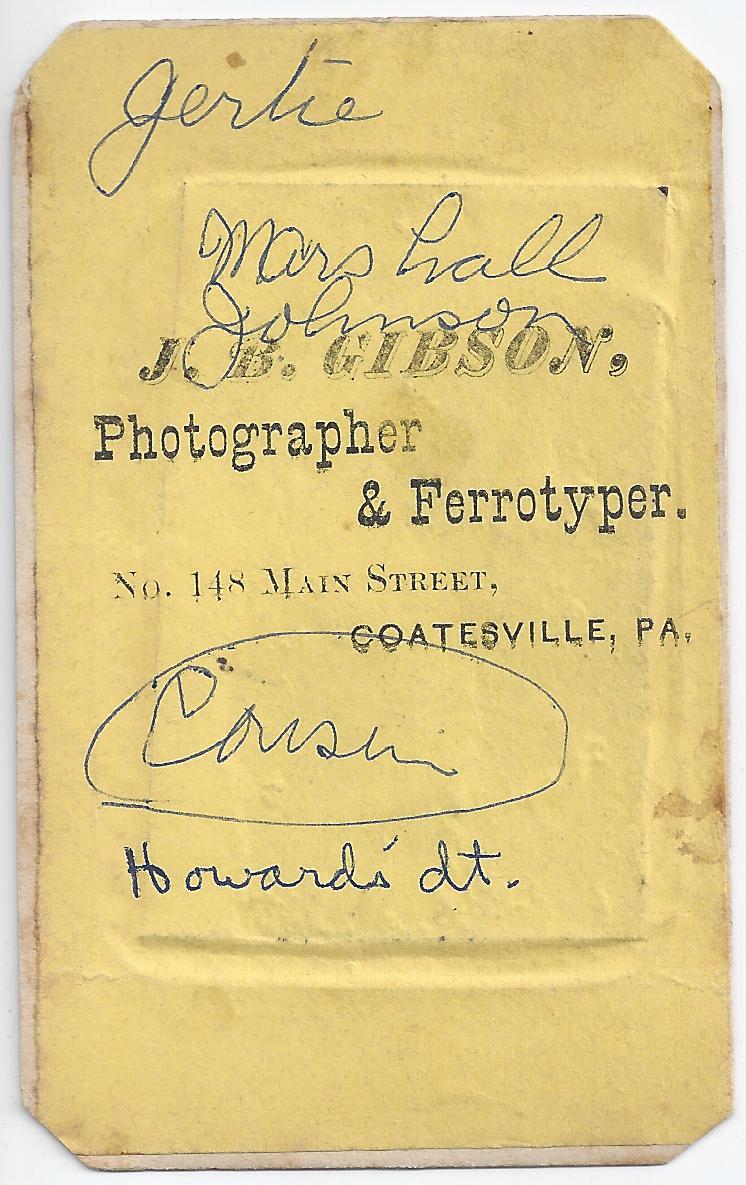 Gertie
Marshall
Johnson
J. B. GIBSON,
Photographer
& Ferrotyper.
No. 148 MAIN STREET,
COATESVILLE, PA.
Cousin
Howard's dt.